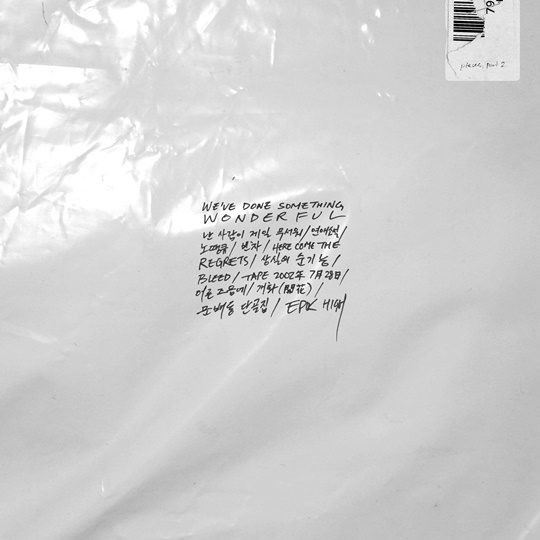 pieces, part 2
WE'VE DONE SOMETHING
WONDERFUL
난 사람이 제일 무서워/연애소설/
노땡큐/빈차/HERE COME THE
REGRETS/상실의 순기능/
BLEED/TAPE 2002年 7月28日/
어른 즈음에/개화(開花)/
문배동 단골집/EPIK HIGH